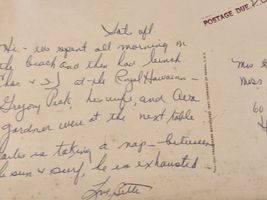 Sat. aft
He - we spent all morning on
the beach and then had lunch
at the Royal Hawaiian -
Gregory Peck, his wife, and Ava
Gardner were at the next table
is taking a nap - between
sun & surf, he is exhausted -
Love, Bette
POSTAGE DUE
60